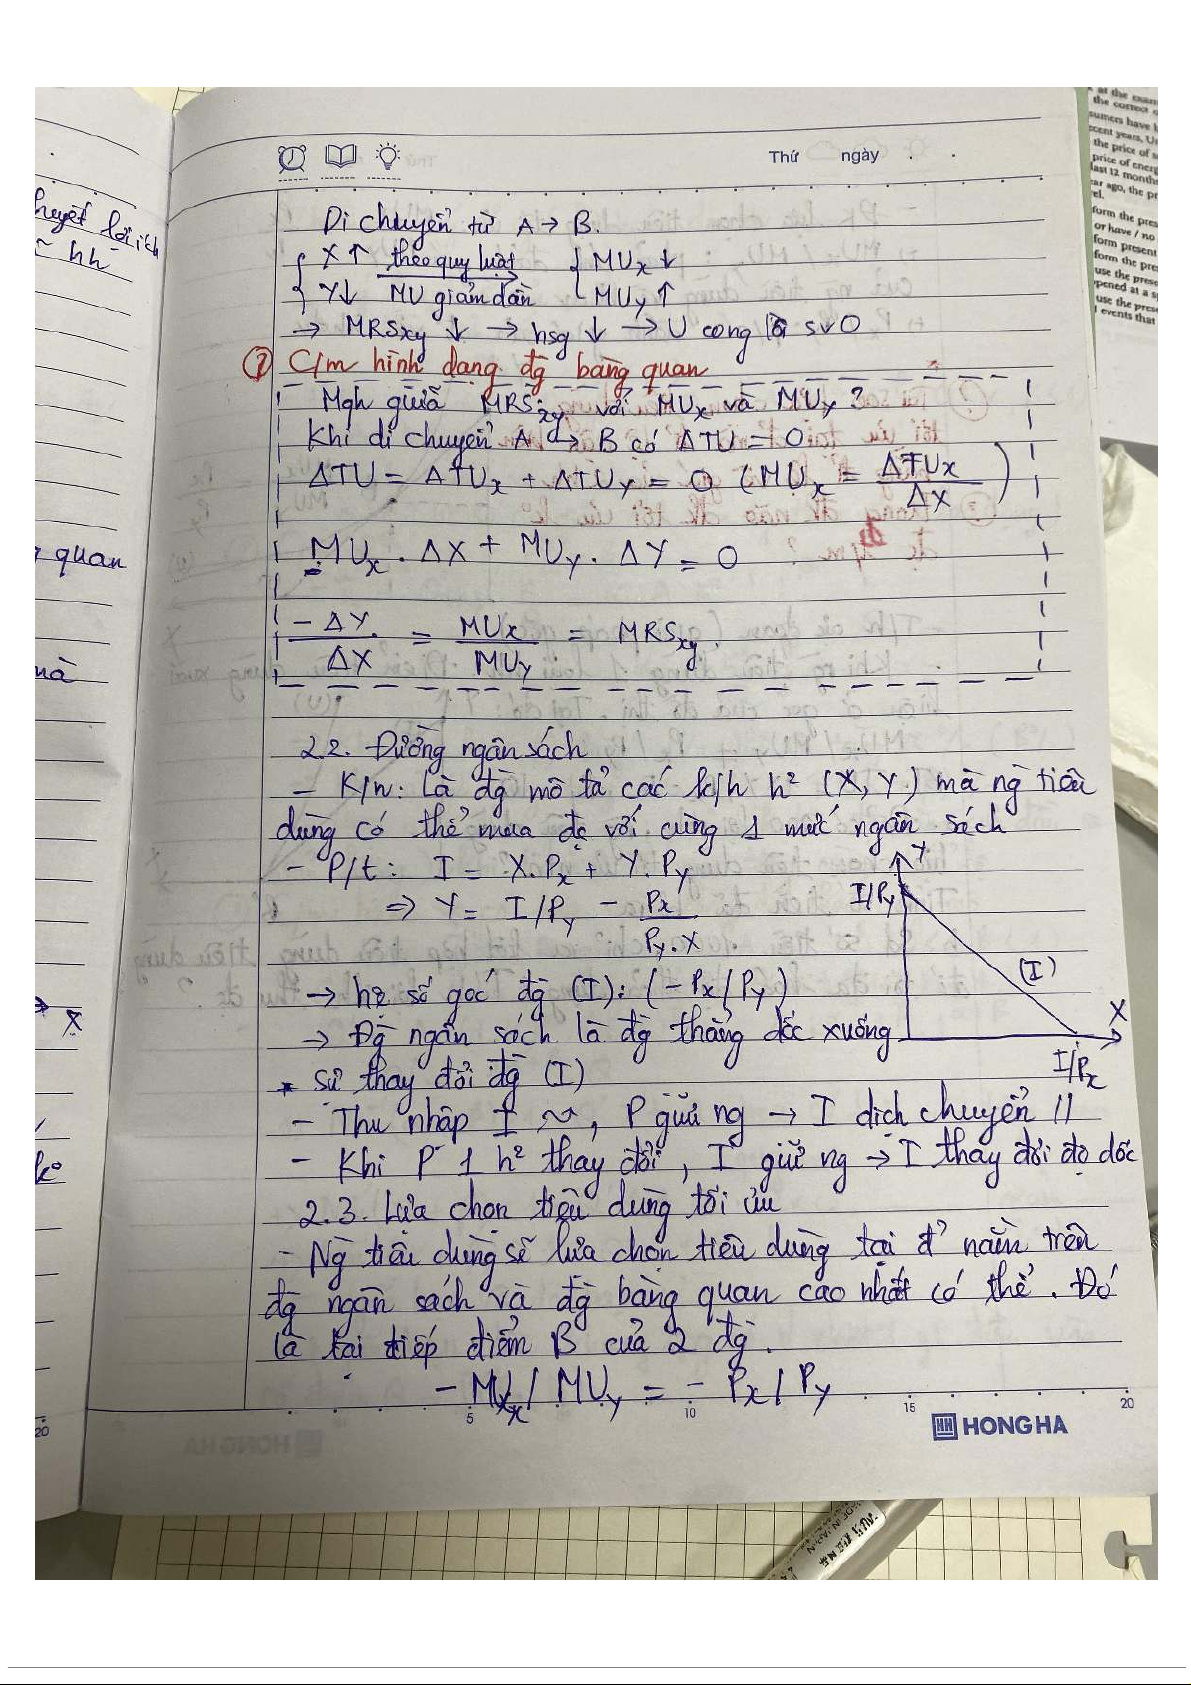 Thứ ngày . .
Di chuyển từ A → B.
X ↑ theo quy luật MUx ↓
Y↓ MU giảm dần MUY ↑
→ MRSxy ↓ → hsg ↓ → U cong lồi svO
? C/m hình dạng đg bàng quan
Mqh giữa MRSxy với MUx và MUY ?
Khi di chuyển A → B có ΔTU = 0
ΔTU = ΔTUx + ΔTUY = 0 (MUx = ΔTUx / ΔX)
MUx . ΔX + MUY . ΔY = 0
-ΔY / ΔX = MUx / MUY = MRSxy
2.2. Đường ngân sách
- K/n: Là đg mô tả các k/h h² (X, Y) mà ng tiêu
dùng có thể mua đc với cùng 1 mức ngân sách
- P/t : I = X.Px + Y.PY
⇒ Y = I/PY - Px / PY . X
→ hệ số góc đg (I): (- Px / PY)
→ Đg ngân sách là đg thẳng dốc xuống
Y
I/PY
(I)
X
I/Px
* Sự thay đổi đg (I)
- Thu nhập I ~>, P giữ ng → I dịch chuyển //
- Khi P 1 h² thay đổi, I giữ ng → I thay đổi độ dốc
2.3. Lựa chọn tiêu dùng tối ưu
- Ng tiêu dùng sẽ lựa chọn tiêu dùng tại đ' nằm trên
đg ngân sách và đg bàng quan cao nhất có thể. Đó
là tại tiếp điểm B của 2 đg.
- MUx / MUY = - Px / PY
5 10 15 20
HONG HA
huyết lợi ích
hh
quan
X
20